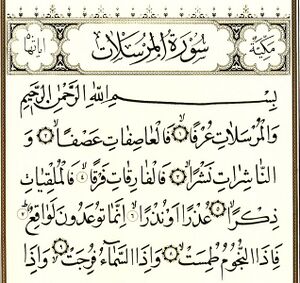 مكية سورة المرسلات آياتها ٥٠
بِسْمِ اللَّهِ الرَّحْمَٰنِ الرَّحِيمِ
وَالْمُرْسَلَاتِ عُرْفًا ١ فَالْعَاصِفَاتِ عَصْفًا ٢ وَ
النَّاشِرَاتِ نَشْرًا ٣ فَالْفَارِقَاتِ فَرْقًا ٤ فَالْمُلْقِيَاتِ
ذِكْرًا ٥ عُذْرًا أَوْ نُذْرًا ٦ إِنَّمَا تُوعَدُونَ لَوَاقِعٌ ٧
فَإِذَا النُّجُومُ طُمِسَتْ ٨ وَإِذَا السَّمَاءُ فُرِجَتْ ٩ وَإِذَا